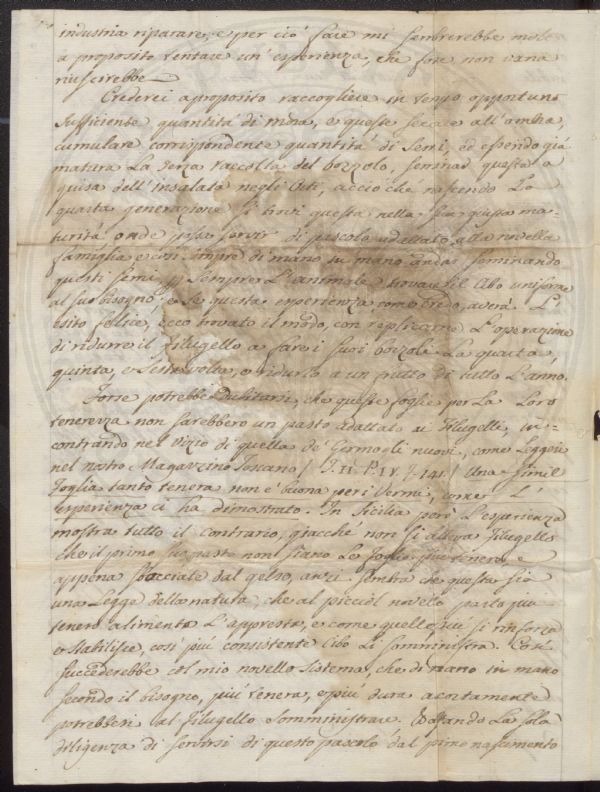 industria riparare, e per ciò fare mi sembrerebbe molto
a proposito tentare un' esperienza, che forse non vana
riuscirebbe
Crederei a proposito raccogliere in tempo opportuno
sufficiente quantità di mora, e queste seccate all' ombra,
cumulare corrispondente quantità di semi, ed essendo già
matura La terza raccolta del bozzolo, seminar questa a
guisa dell' insalata negli Orti, acciò che nascendo La
quarta generazione si trovi questa nella sua giusta ma-
turità onde possa servir di pascolo adattato alla novella
famiglia e così sempre di mano in mano andar seminando
questi semi Sempre L' animale trovasse il Cibo uniforme
al suo bisogno, e se questa esperienza, come credo, averà L'
esito felice, ecco trovato il modo, con replicarne L' operazione
di ridurre il filugello a fare i suoi bozzoli La quarta,
quinta, e sesta volta, e ridurlo a un frutto di tutto L' anno.
Forse potrebbe dubitarsi, che queste foglie per La Loro
tenerezza non sarebbero un pasto adattato ai filugelli, in-
contrando nel vizio di quella de' Germogli nuovi, come Leggesi
nel nostro Magazzino Toscano / T. II. P. IV. f. 141. / Una simil
foglia tanto tenera non è buona per i Vermi, come L'
esperienza ci ha dimostrato. In Sicilia però L' esperienza
mostra tutto il contrario, giacchè non si alleva filugello
che il primo suo pasto non siano Le foglie più tenere e
appena sbocciate dal gelso, anzi sembra che questa sia
una Legge della natura, che al piccol novello parto più
tenero alimento L' appresta, e come quello più si rinforza
e stabilisce, così più consistente Cibo Li somministra. Così
succederebbe col mio novello sistema, che di mano in mano
secondo il bisogno, più tenera, e più dura acortamente
potrebbesi al filugello somministrare. Bastando La sola
diligenza di servirsi di questo pascolo dal primo nascimento